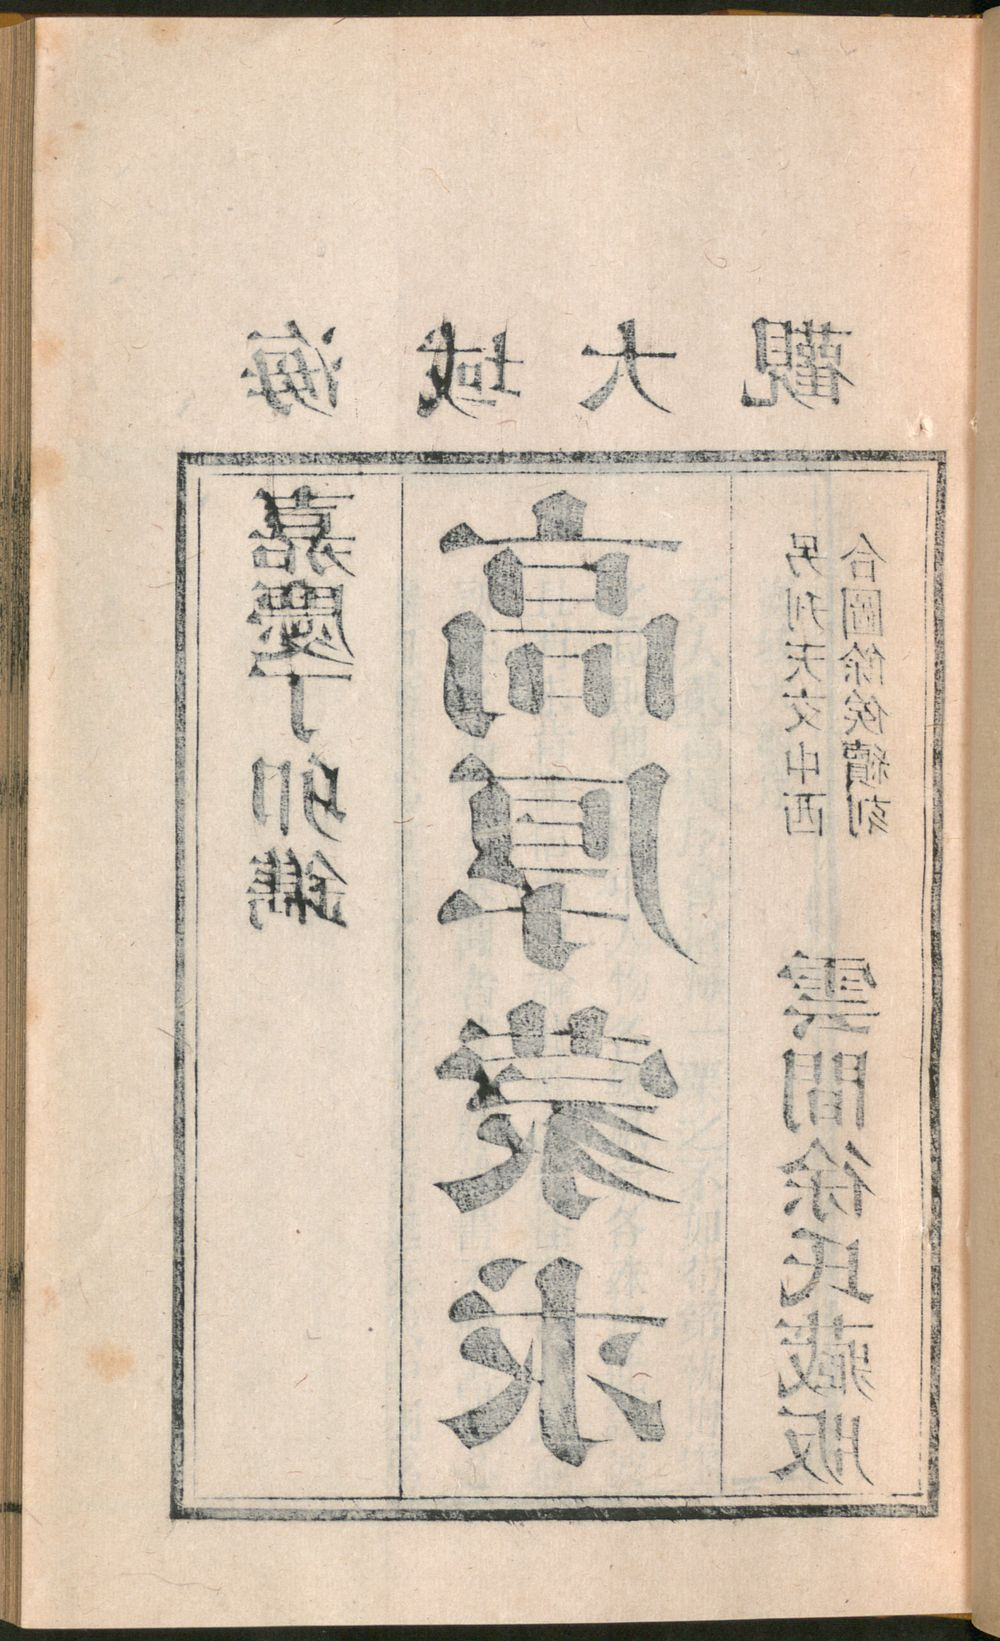 海域大觀
嘉慶丁卯鐫
高厚蒙求
另刊天文中西
合圖餘俟續刻
雲間徐氏藏版